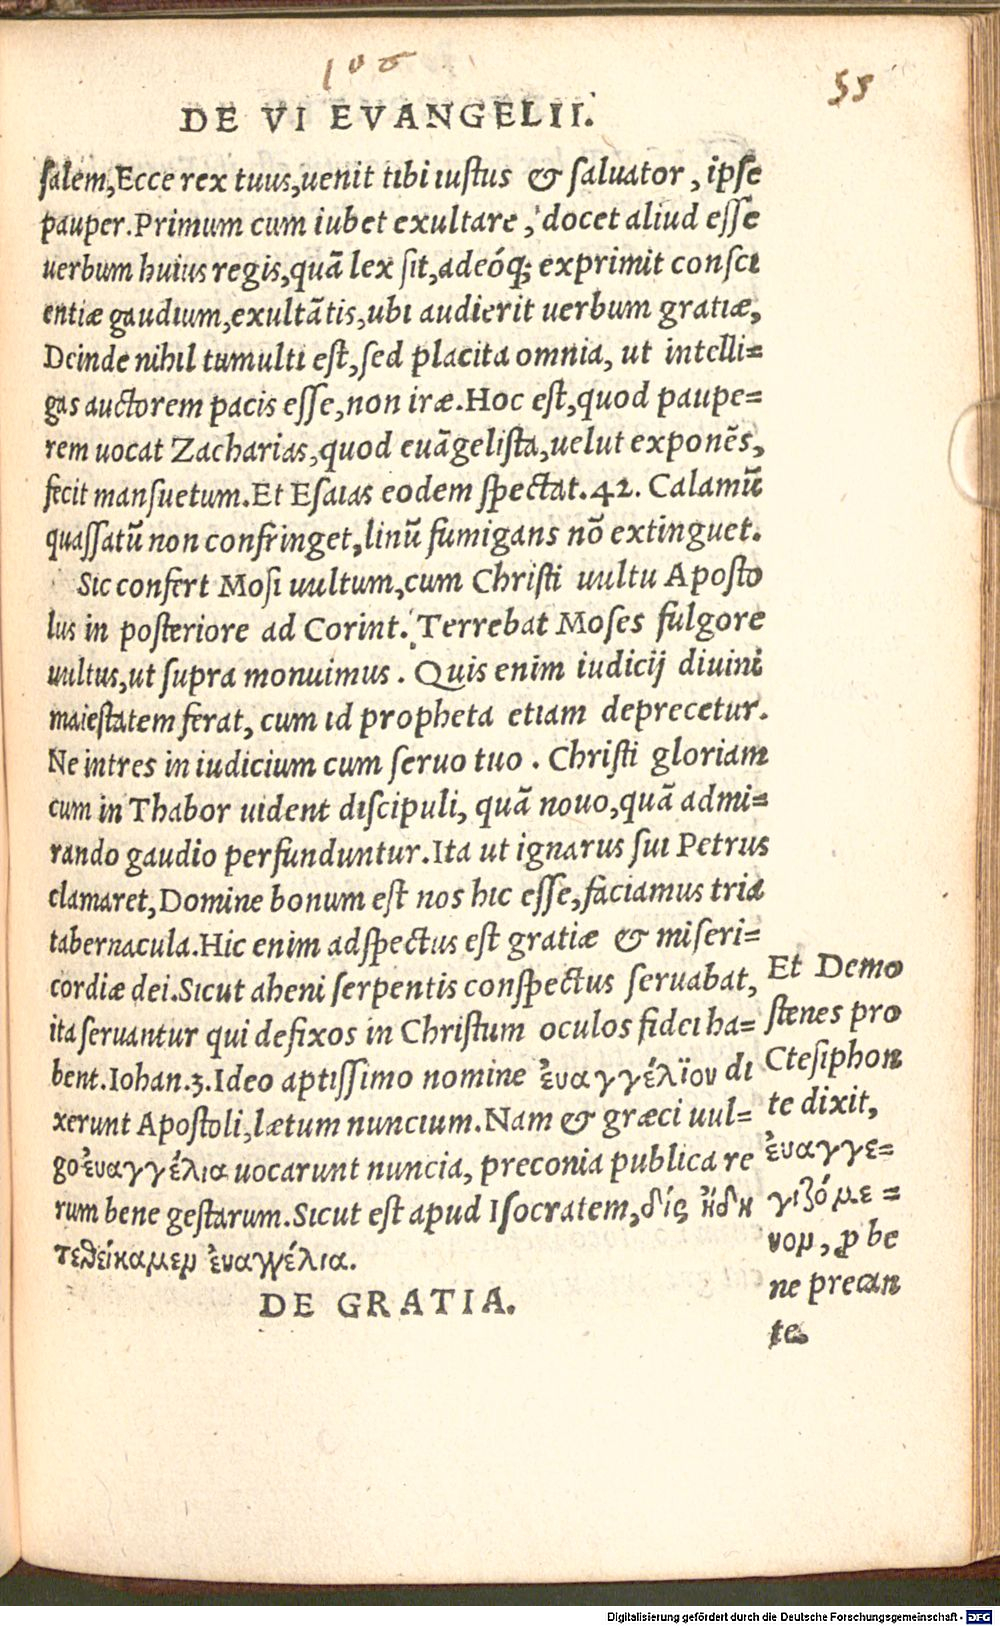 106
55
DE VI EVANGELII.
salem, Ecce rex tuus, uenit tibi iustus & saluator, ipse
pauper. Primum cum iubet exultare, docet aliud esse
uerbum huius regis, quã lex sit, adeóq; exprimit consci
entiæ gaudium, exultãtis, ubi audierit uerbum gratiæ,
Deinde nihil tumulti est, sed placita omnia, ut intelli=
gas auctorem pacis esse, non iræ. Hoc est, quod paupe=
rem uocat Zacharias, quod euãgelista, uelut exponẽs,
fecit mansuetum. Et Esaias eodem spectat. 42. Calamũ
quassatũ non confringet, linũ fumigans nõ extinguet.
Sic confert Mosi uultum, cum Christi uultu Aposto
lus in posteriore ad Corint. Terrebat Moses fulgore
uultus, ut supra monuimus. Quis enim iudicij diuini
maiestatem ferat, cum id propheta etiam deprecetur.
Ne intres in iudicium cum seruo tuo. Christi gloriam
cum in Thabor uident discipuli, quã nouo, quã admi=
rando gaudio perfunduntur. Ita ut ignarus sui Petrus
clamaret, Domine bonum est nos hic esse, faciamus tria
tabernacula. Hic enim adspectus est gratiæ & miseri=
cordiæ dei. Sicut aheni serpentis conspectus seruabat,
ita seruantur qui defixos in Christum oculos fidei ha=
bent. Iohan. 3. Ideo aptissimo nomine ἐυαγγέλϊου di
xerunt Apostoli, lætum nuncium. Nam & græci uul=
go ἐυαγγέλια uocarunt nuncia, preconia publica re
rum bene gestarum. Sicut est apud Isocratem, δίς ἤδη
τεθείκαμεν ἐυαγγέλια.
DE GRATIA.
Et Demo
stenes pro
Ctesiphon
te dixit,
ἐυαγγε=
γιζόμε=
νομ, ꝓ be
ne precan
te.
Digitalisierung gefördert durch die Deutsche Forschungsgemeinschaft - DFG